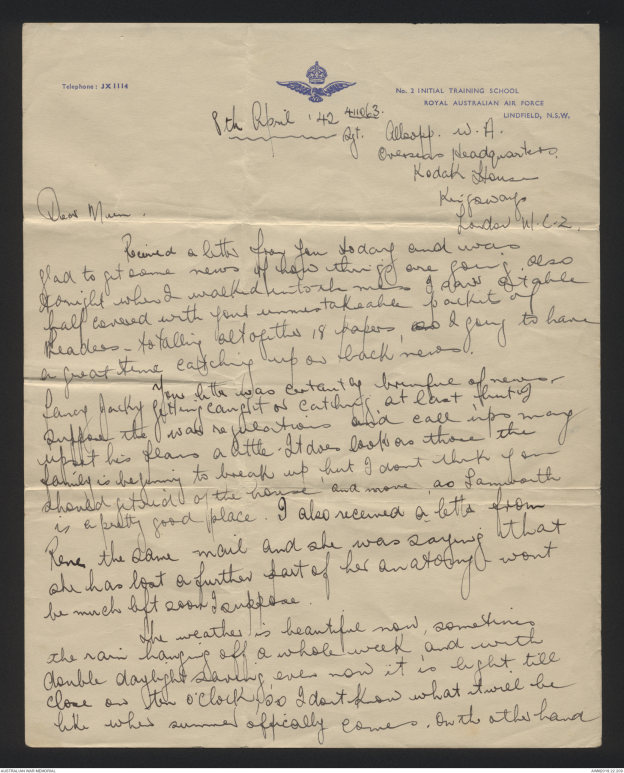 Telephone: JX1114
No. 2 INITIAL TRAINING SCHOOL
ROYAL AUSTRALIAN AIR FORCE
LINDFIELD, N.S.W.
8th April '42 411063.
Sgt. Allsopp. W. A.
Overseas Headquarters.
Kodak House
Kingsway
London W.C.2.
Dear Mum.
Received a letter from you today and was
glad to get some news of how things are going. also
tonight when I walked into the mess I saw a table
half covered with your unmistakeable packet of
Readers - totalling altogether 18 papers, so I going to have
a great time catching up on back news.
Your letter was certainly brimful of news.
Fancy Jacky getting caught or catching at last
suppose the war regulations and call ups may
upset his plans a little. It does look as those the
family is beginning to break up but I dont think you
should get rid of the house and move, as Tamworth
is a pretty good place. I also received a letter from
Rene the same mail and she was saying that
she has lost a further part of her anatomy - wont
be much left soon I suppose.
The weather is beautiful now, sometimes
the rain hanging off a whole week and with
double daylight saving even now it is light till
close on ten o'clock, so I dont know what it will be
like when summer officially comes. On the other hand
AUSTRALIAN WAR MEMORIAL